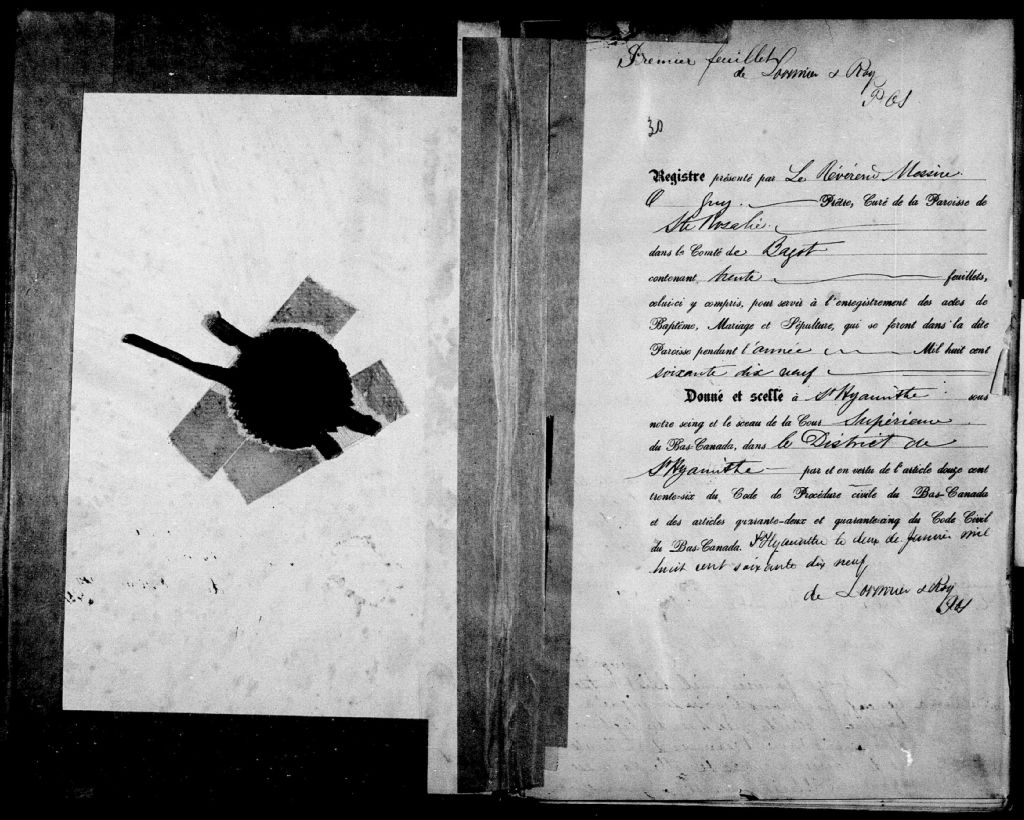 Premier feuillet
de Lorimier & Roy
P C S
30
Registre présenté par Le Révérend Messire
O Guy Prêtre, Curé de la Paroisse de
Ste Rosalie
dans le Comté de Bagot
contenant trente feuillets,
celui-ci y compris, pour servir à l'enregistrement des actes de
Baptême, Mariage et Sépulture, qui se feront dans la dite
Paroisse pendant l'année Mil huit cent
soixante dix neuf
Donné et scellé à St Hyacinthe sous
notre seing et le sceau de la Cour Supérieure
du Bas-Canada, dans le District de
St Hyacinthe par et en vertu de l'article douze cent
trente-six du Code de Procédure civile du Bas-Canada
et des articles quarante-deux et quarante-cinq du Code Civil
du Bas-Canada. St Hyacinthe le deux de Janvier mil
huit cent soixante dix neuf
de Lorimier & Roy
PCS